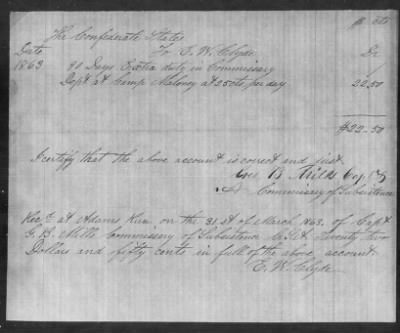 $ cts
The Confederate States
Date To T. W. Clyde Dr
1863 90 Days Extra duty in Commissary
Dept at Camp Maloney at 25 cts per day 22.50
$22.50
I certify that the above account is correct and just.
Geo B Mills Capt &
Commissary of Subsistence
Recd at Adams Run on the 31st of March 1863, of Capt
G. B. Mills Commissary of Subsistence twenty two
Dollars and fifty cents in full of the above account.
T. W. Clyde